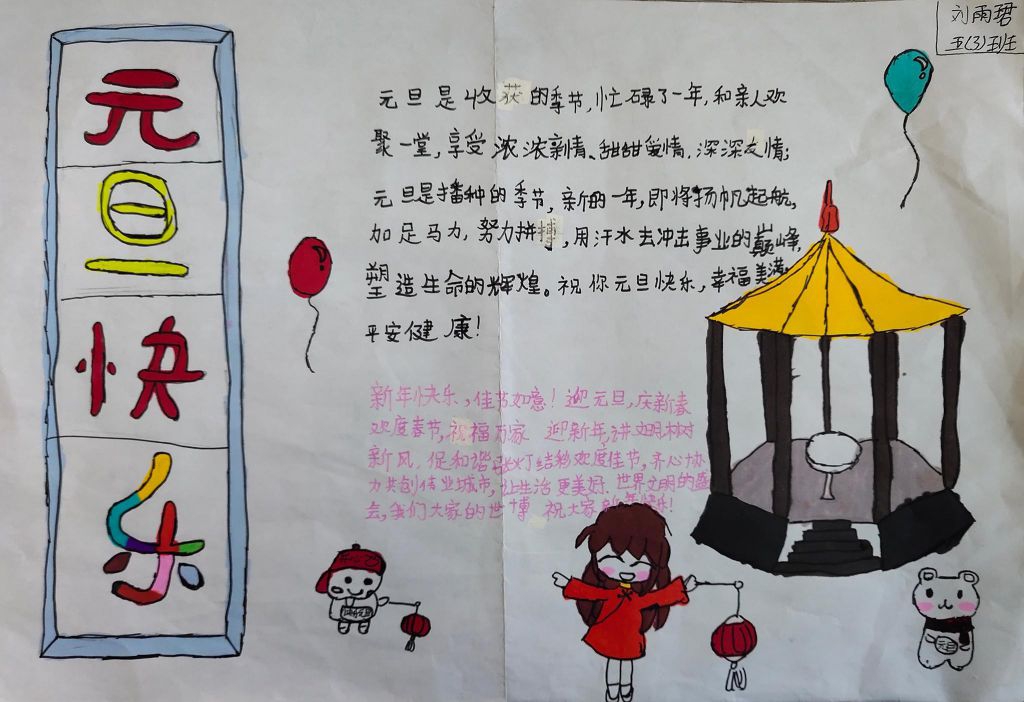 刘雨珺
五(3)班
元
旦
快
乐
元旦是收获的季节,忙碌了一年,和亲人欢
聚一堂,享受浓浓亲情、甜甜爱情,深深友情;
元旦是播种的季节,新的一年,即将扬帆起航,
加足马力,努力拼搏,用汗水去冲击事业的巅峰,
塑造生命的辉煌。祝你元旦快乐,幸福美满,
平安健康!
新年快乐,佳节如意!迎元旦,庆新春
欢度春节,祝福万家 迎新年,讲文明树
新风,促和谐张灯结彩欢度佳节,齐心协
力共创伟业城市,让生活更美好.世界文明的盛
会,我们大家的世博 祝大家新年快乐!
元旦